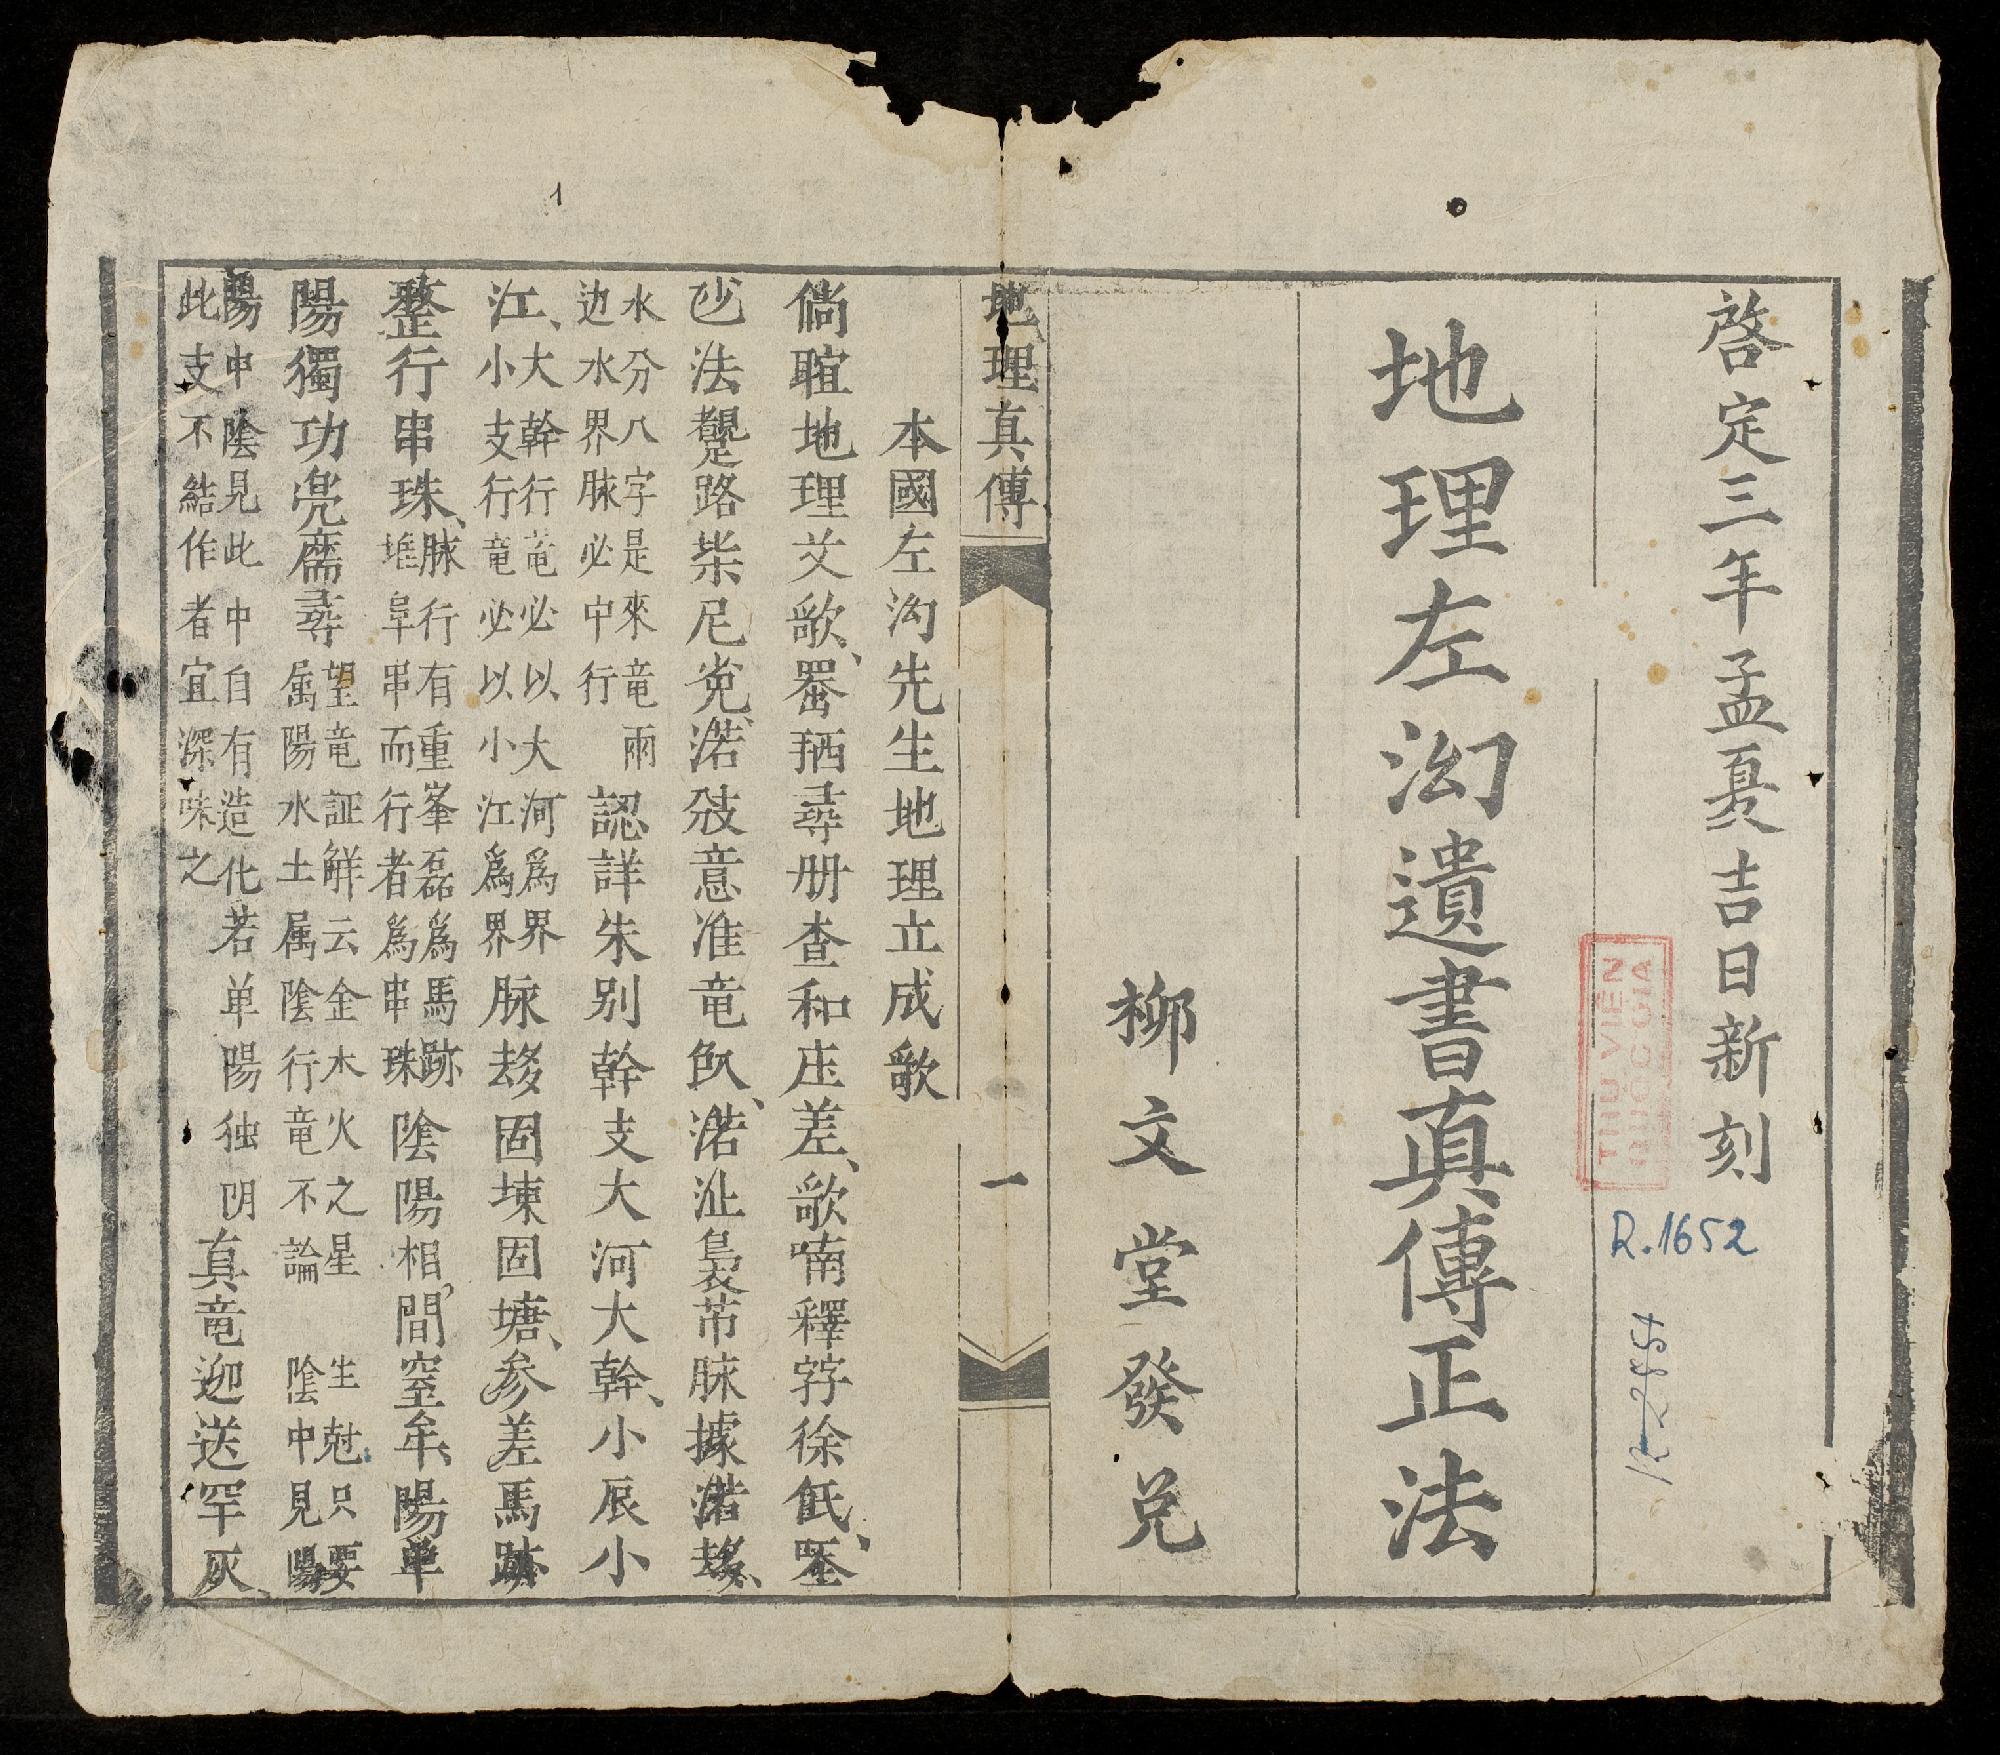 啓定三年孟夏吉日新刻
地理左沟遺書真傳正法
柳文堂發兑
THƯ VIỆN
QUỐC GIA
R.1652
地理真傳
一
本國左沟先生地理立成歌
倘暄地理文歌、畱𢬣尋册查和庄差、歌喃釋字徐𠂎、
𠚢法𨀈路柴尼𠓨、渃𢚸意准竜𣩂、渃沚裊芇脉據渃𨃴、
水分八字是來竜雨
边水界脉必中行
認詳朱别幹支大河大幹、小辰小
江、
大幹行竜必以大河爲界
小支行竜必以小江爲界
脉𨃴固㙍固塘、参差馬跡
整行串珠、
脉行有重峯磊爲馬跡
堆阜串而行者爲串珠
陰陽相間窒牟、陽单
陽獨功𠅎齋尋
望竜証觧云金木火之星
属陽水土属陰行竜不論
生尅只要
陰中見陽
陽中陰見此中自有造化若单陽独阴
此支不結作者宜深味之
真竜迎送罕灰、